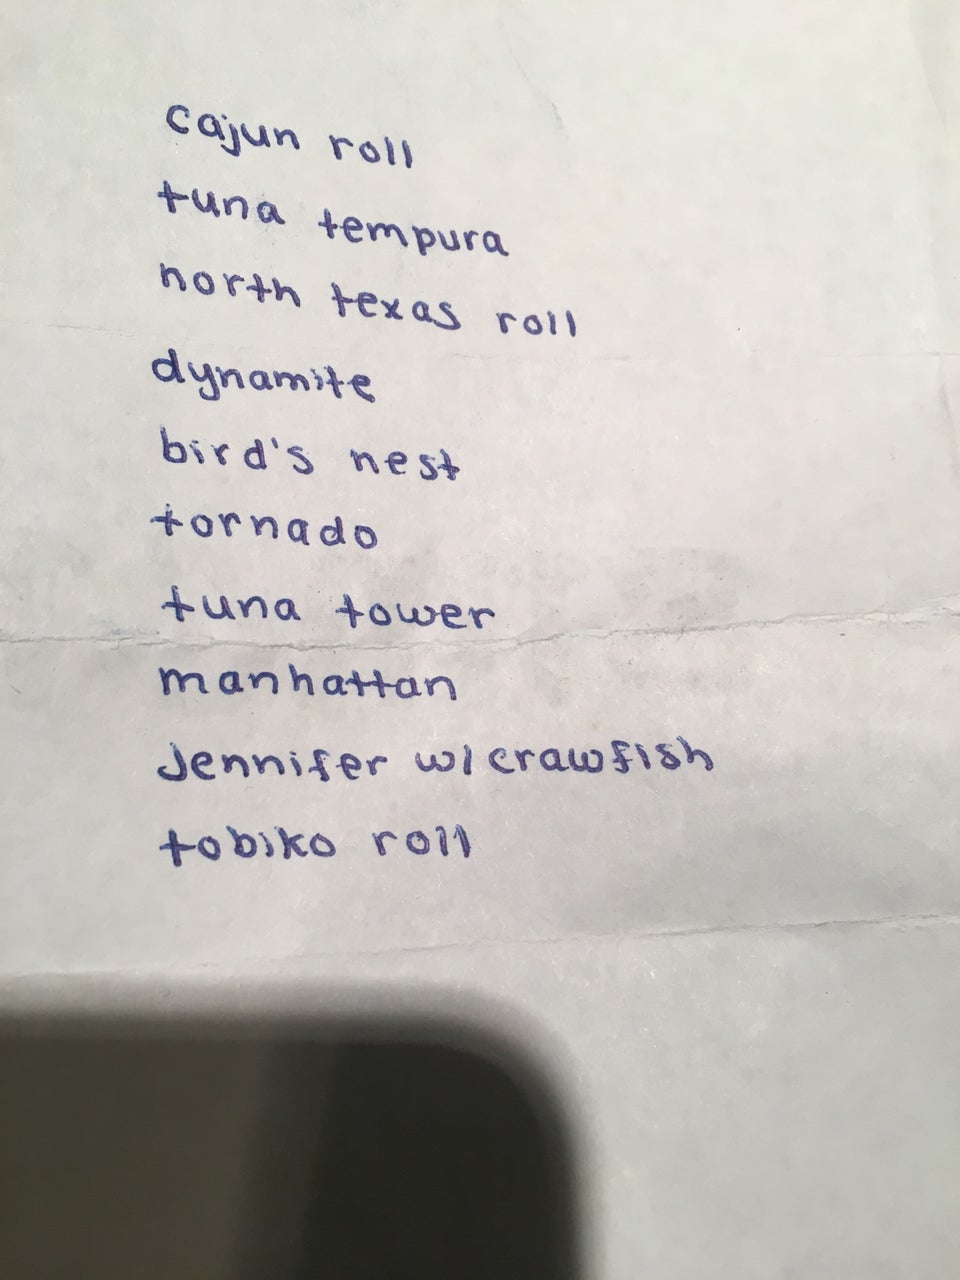 cajun roll
tuna tempura
north texas roll
dynamite
bird's nest
tornado
tuna tower
manhattan
Jennifer w/ crawfish
tobiko roll